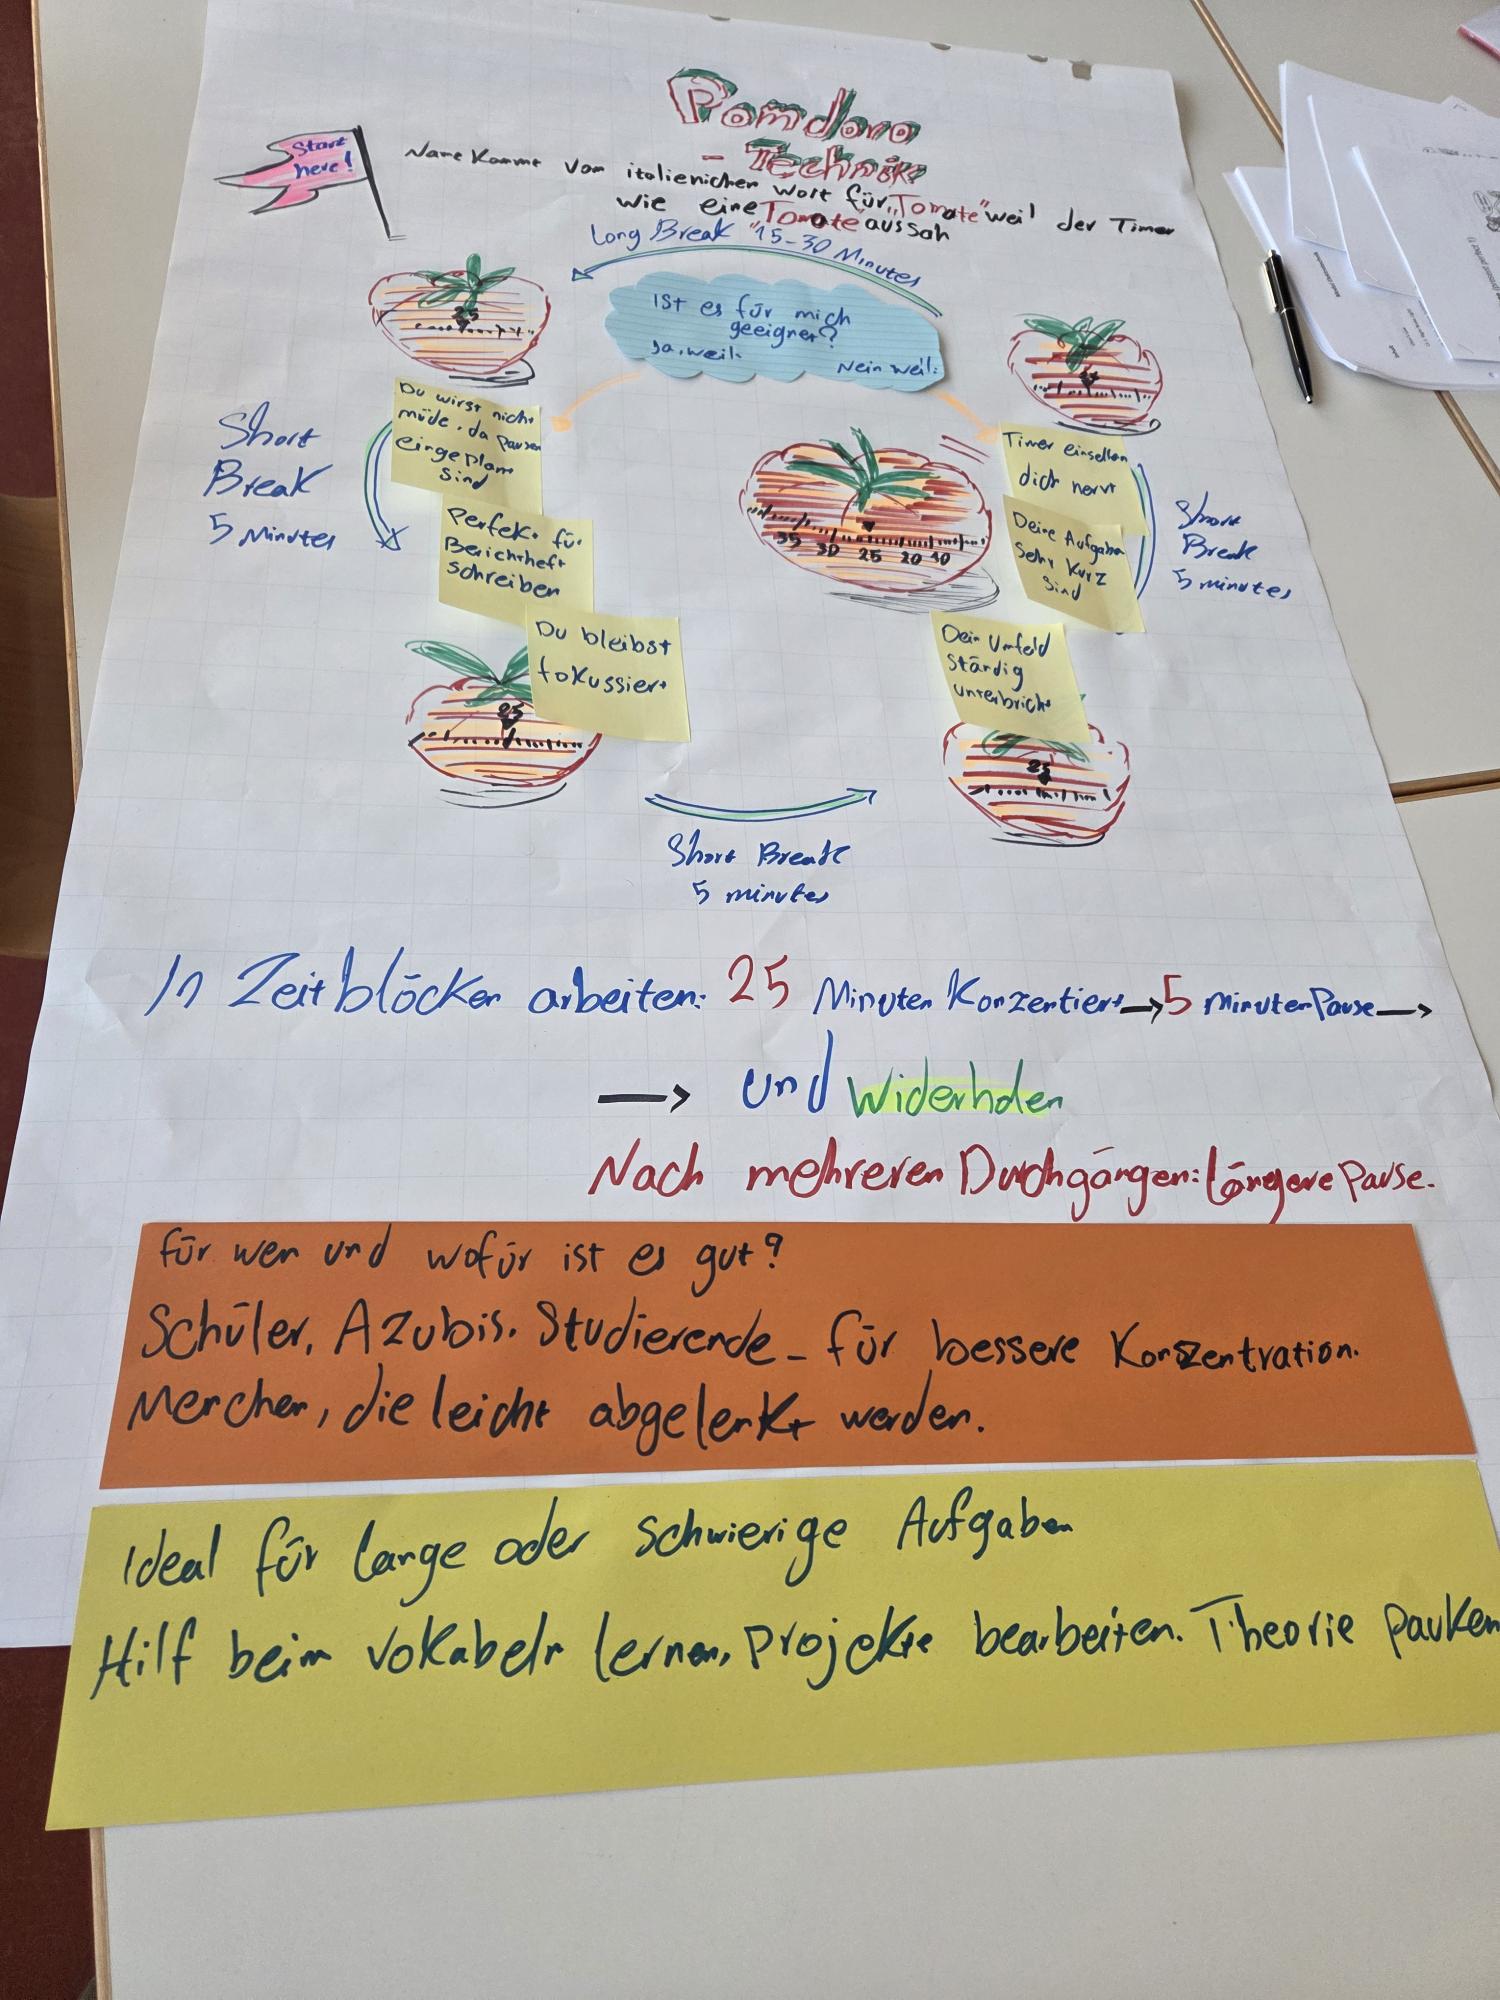 Pomdoro
- Technik
Start
here!
Name Kommt vom italienicher Wort für "Tomate" weil der Timer
wie eine "Tomate" aussah
Long Break 15-30 Minutes
Ist es für mich
geeignet?
Ja, weil:
Nein weil:
25
25
Du wirst nicht
müde, da Pausen
eingeplant
sind
Perfekt für
Berichtsheft
schreiben
Du bleibst
fokussiert
Short
Break
5 Minutes
35 30 25 20 10
Timer einstellen
dich nervt
Deine Aufgaben
Sehr Kurz
sind
Dein Umfeld
Ständig
unterbricht
Short
Break
5 minutes
25
25
Short Break
5 minutes
In Zeitblöcken arbeiten: 25 Minuten Konzentiert → 5 minuten Pause →
→ und Widerholen
Nach mehreren Durchgängen: längere Pause.
für wen und wofür ist es gut?
Schüler, Azubis. Studierende - für bessere Konzentration.
Menschen, die leicht abgelenkt werden.
Ideal für lange oder schwierige Aufgaben
Hilf beim Vokabeln lernen, Projekte bearbeiten. Theorie pauken